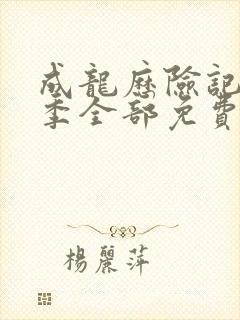 成龍歷險記
季全部免費
楊麗萍